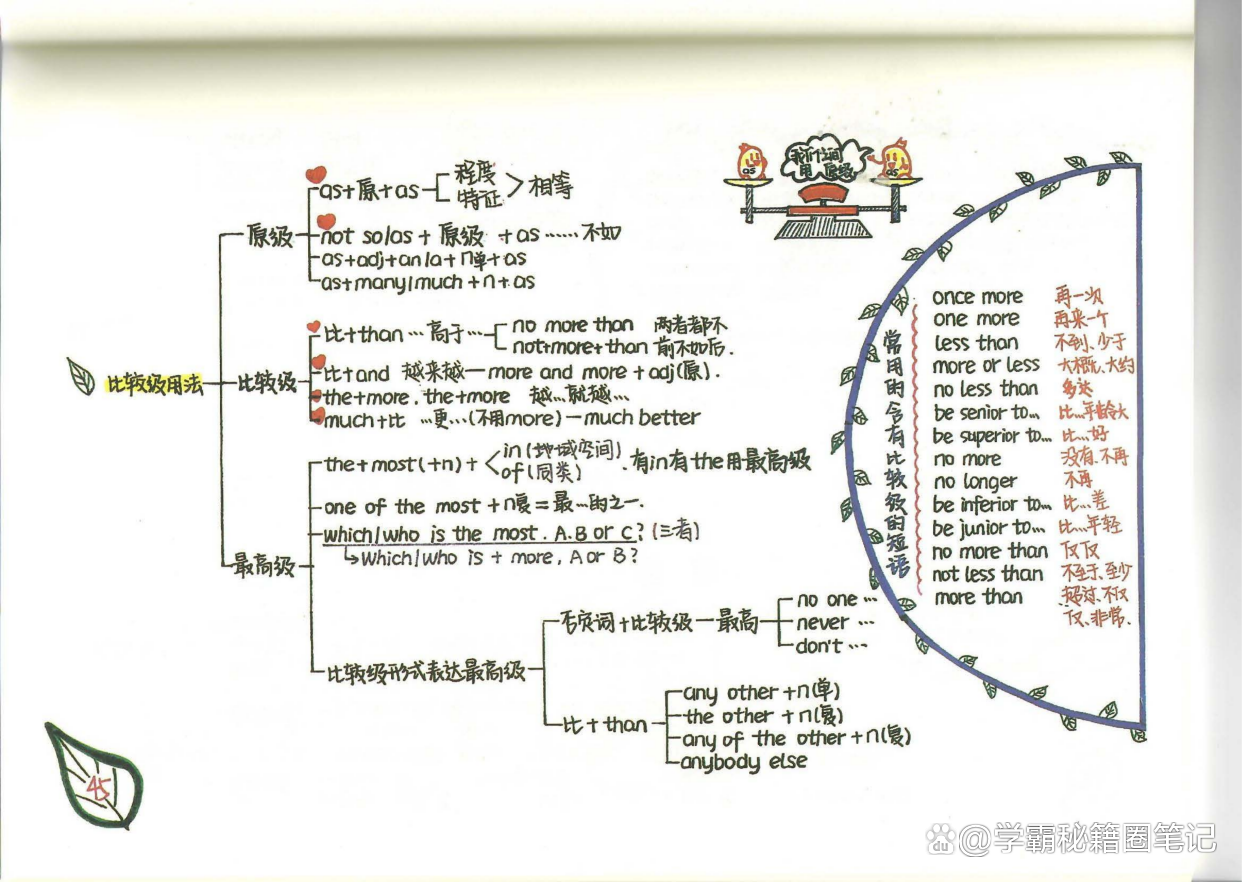 我们之间
用原级
as
as
比较级用法
原级
as+原+as
程度
特征
相等
not so/as + 原级 + as ……不如
as+adj+an/a+n单+as
as+many/much+n+as
比较级
比+than …高于…
no more than 两者都不
not+more+than 前不如后.
比+and 越来越—more and more + adj(原).
the+more, the+more 越…就越…
much+比 …更…(不用more)—much better
最高级
the+most(+n)+
in(地域空间)
of(同类)
.有in有the用最高级
one of the most +n复=最…的之一.
which/who is the most. A.B or C? (三者)
Which/who is + more, A or B?
比较级形式表达最高级
否定词+比较级—最高
no one …
never …
don't …
比+than
any other +n(单)
the other +n(复)
any of the other+n(复)
anybody else
常用的含有比较级的短语
once more 再一次
one more 再来一个
less than 不到、少于
more or less 大概、大约
no less than 多达
be senior to… 比…年龄大
be superior to… 比…好
no more 没有、不再
no longer 不再
be inferior to… 比…差
be junior to… 比…年轻
no more than 仅仅
not less than 不至于、至少
more than 超过、不仅
仅、非常.
45
@学霸秘籍圈笔记